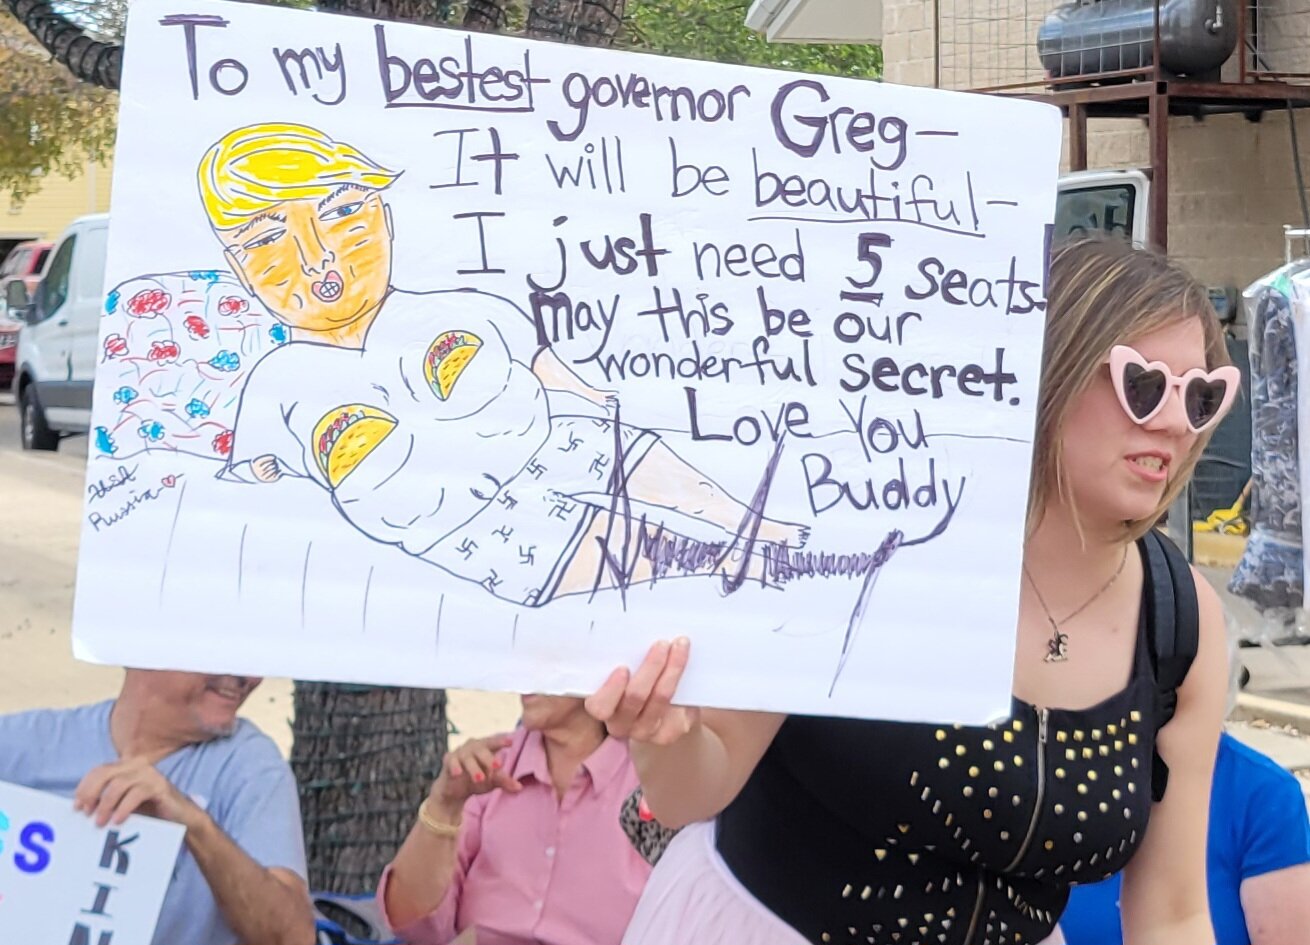 To my bestest governor Greg—
It will be beautiful—
I just need 5 seats.
may this be our
wonderful secret.
Love You
Buddy
Russia
SS
KIN